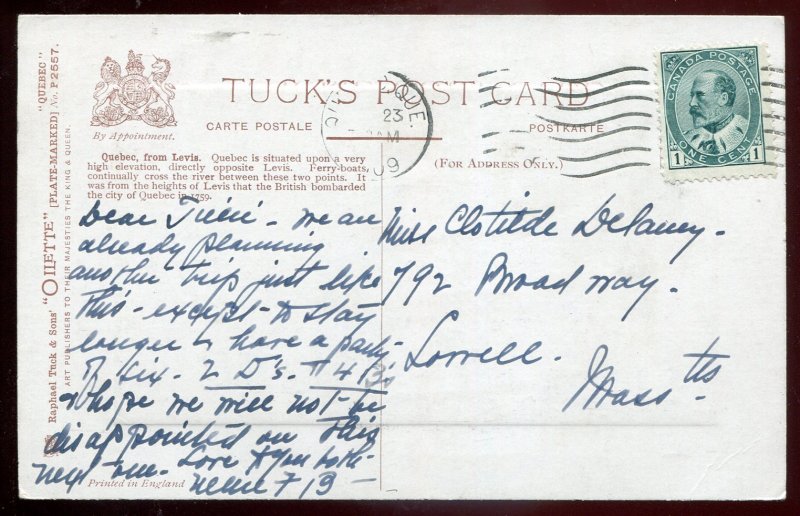 "QUEBEC"
Raphael Tuck & Sons' "OILETTE" [PLATE-MARKED] No. P2557.
ART PUBLISHERS TO THEIR MAJESTIES THE KING & QUEEN.
By Appointment.
TUCK'S POST CARD
CARTE POSTALE
POSTKARTE
(FOR ADDRESS ONLY.)
QUE.
23
M
09
CANADA POSTAGE
1 ONE CENT 1
Quebec, from Levis. Quebec is situated upon a very
high elevation, directly opposite Levis. Ferry-boats,
continually cross the river between these two points. It
was from the heights of Levis that the British bombarded
the city of Quebec in 1759.
Dear - we are
already planning
another trip just like
this - except to stay
longer & have a party
of six. 2 D's. 4
& hope we will not be
disappointed on this
next one. Love to you both
Printed in England
Miss Clotilde Delaney.
792 Broadway.
Lowell.
Mass tts